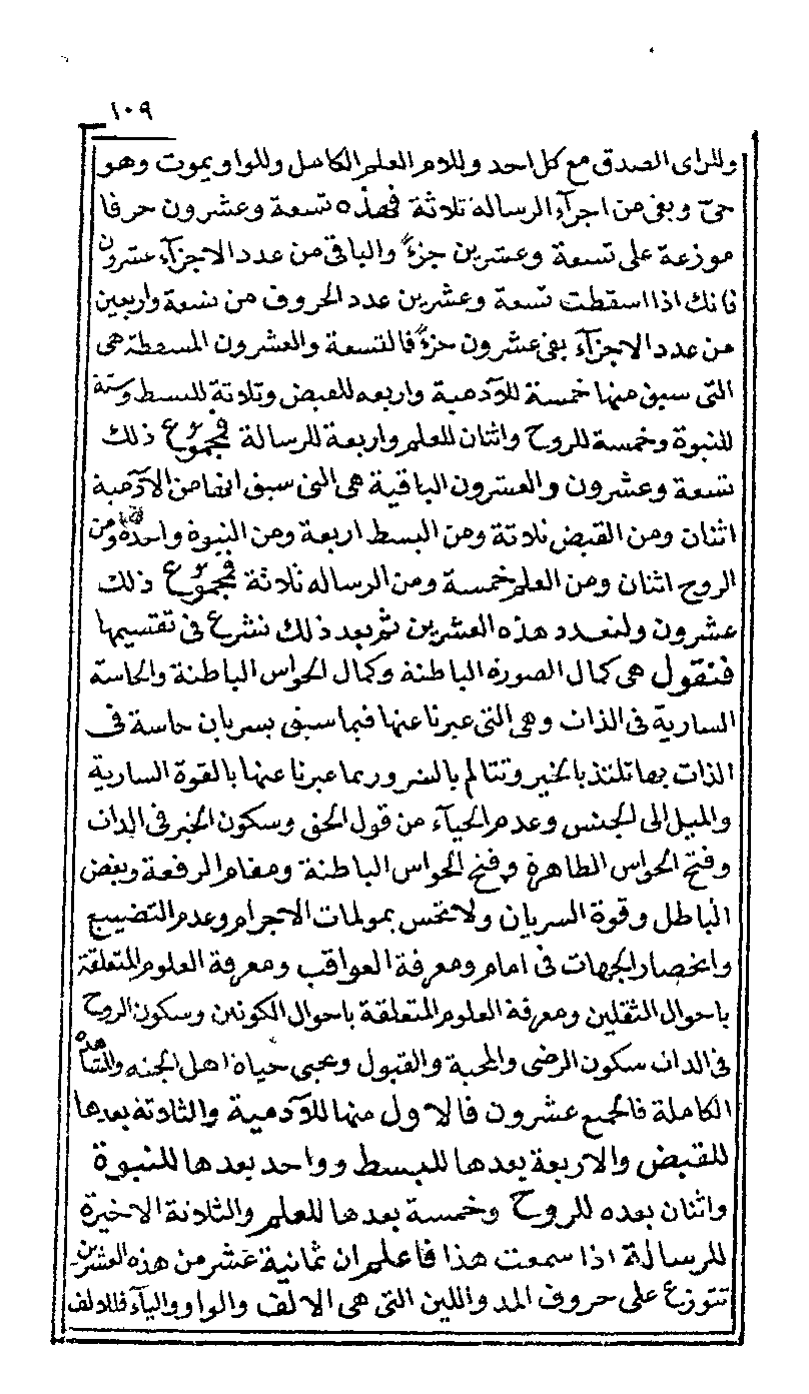 ١٠٩
وللراى الصدق مع كل احد وللام العلم الكامل وللواو يموت وهو
حىّ وبقى من اجزآء الرسالة ثلاثة فهذه تسعة وعشرون حرفا
موزعة على تسعة وعشرين جزءً والباقى من عدد الاجزآء عشرون
فانك اذا اسقطت تسعة وعشرين عدد الحروف من تسعة واربعين
من عدد الاجزآء بقى عشرون جزءً فالتسعة والعشرون المسقطة هى
التى سبق منها خمسة للآدمية واربعه للقبض وثلاثة للبسط وستة
للنبوة وخمسة للروح واثنان للعلم واربعة للرسالة فمجموع ذلك
تسعة وعشرون والعشرون الباقية هى التى سبق انها من الآدمية
اثنان ومن القبض ثلاثة ومن البسط اربعة ومن النبوة واحدة ومن
الروح اثنان ومن العلم خمسة ومن الرساله ثلاثة فمجموع ذلك
عشرون ولنعدد هذه العشرين ثم بعد ذلك نشرع فى تقسيمها
فنقول هى كمال الصورة الباطنة وكمال الحواس الباطنة والحاسة
السارية فى الذات وهى التى عبرنا عنها فيما سبق بسريان حاسة فى
الذات بها تلتذ بالخير وتتالم بالضرور بما عبرنا عنها بالقوة السارية
والميل الى الجنس وعدم الحيآء من قول الحق وسكون الخير فى الذات
وفتح الحواس الظاهرة وفتح الحواس الباطنة ومقام الرفعة وبغض
الباطل وقوة السريان ولا تحس بمولمات الاجرام وعدم التضييع
وانحصار الجهات فى امام ومعرفة العواقب ومعرفة العلوم المتعلقة
باحوال الثقلين ومعرفة العلوم المتعلقة باحوال الكونين وسكون الروح
فى الذات سكون الرضى والمحبة والقبول ويحيى حياة اهل الجنه والمشاهدة
الكاملة فالجميع عشرون فالاول منها للآدمية والثلاثة بعدها
للقبض والاربعة بعدها للبسط وواحد بعدها للنبوة
واثنان بعده للروح وخمسة بعدها للعلم والثلاثة الاخيرة
للرسالة اذا سمعت هذا فاعلم ان ثمانية عشر من هذه العشرين
تتوزع على حروف المد واللين التى هى الالف والواو واليآء فللالف